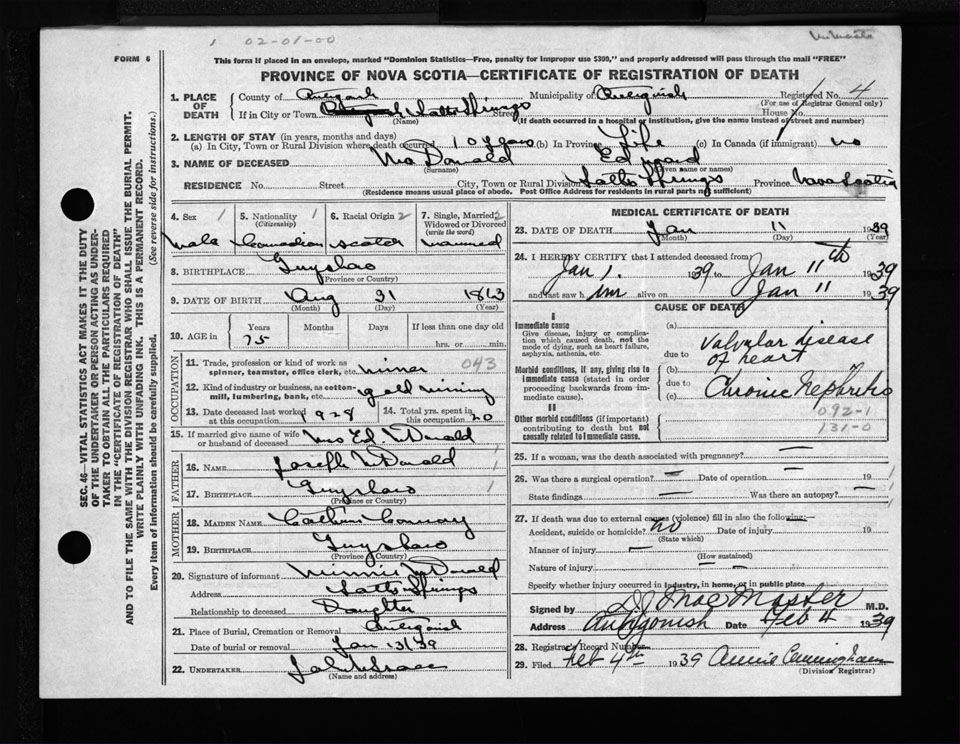 1 02-01-00
FORM 6
This form if placed in an envelope, marked "Dominion Statistics—Free, penalty for improper use $300," and properly addressed will pass through the mail "FREE"
PROVINCE OF NOVA SCOTIA—CERTIFICATE OF REGISTRATION OF DEATH
1. PLACE OF DEATH
County of Antigonish Municipality of Antigonish Registered No. 4
(For use of Registrar General only)
If in City or Town Salts Springs Street House No.
(Name) (If death occurred in a hospital or institution, give the name instead of street and number)
2. LENGTH OF STAY (in years, months and days)
(a) In City, Town or Rural Division where death occurred 10 years (b) In Province Life (c) In Canada (if immigrant) no
3. NAME OF DECEASED McDonald Edward
(Surname) (Given name or names)
RESIDENCE No. Street City, Town or Rural Division Salts Springs Province Nova Scotia
(Residence means usual place of abode. Post Office Address for residents in rural parts not sufficient)
4. Sex 1 5. Nationality 1 (Citizenship) 6. Racial Origin 2 7. Single, Married 2 Widowed or Divorced (write the word)
Male Canadian Scotch Married
8. BIRTHPLACE Guysboro
(Province or Country)
9. DATE OF BIRTH Aug 31 1863
(Month) (Day) (Year)
10. AGE in Years Months Days If less than one day old
75 hrs. or min.
OCCUPATION
11. Trade, profession or kind of work as spinner, teamster, office clerk, etc. Miner 043
12. Kind of industry or business, as cotton-mill, lumbering, bank, etc. gold mining
13. Date deceased last worked at this occupation 1928 14. Total yrs. spent in this occupation 20
15. If married give name of wife or husband of deceased Mrs Ed. McDonald
FATHER
16. NAME Joseph McDonald
17. BIRTHPLACE Guysboro
(Province or Country)
MOTHER
18. MAIDEN NAME
19. BIRTHPLACE Guysboro
(Province or Country)
20. Signature of informant Minnie McDonald
Address Salts Springs
Relationship to deceased Daughter
21. Place of Burial, Cremation or Removal Antigonish
Date of burial or removal Jan 13/39
22. UNDERTAKER
(Name and address)
MEDICAL CERTIFICATE OF DEATH
23. DATE OF DEATH Jan 11 1939
(Month) (Day) (Year)
24. I HEREBY CERTIFY that I attended deceased from
Jan 1. 1939 to Jan 11th 1939
and last saw him alive on Jan 11 1939
CAUSE OF DEATH
I
Immediate cause
Give disease, injury or complication which caused death, not the mode of dying, such as heart failure, asphyxia, asthenia, etc.
(a) Valvular disease
due to of heart
Morbid conditions, if any, giving rise to immediate cause (stated in order proceeding backwards from immediate cause).
(b)
due to Chronic Nephritis
(c)
092-1
131-0
II
Other morbid conditions (if important) contributing to death but not causally related to immediate cause.
25. If a woman, was the death associated with pregnancy? —
26. Was there a surgical operation? — Date of operation — 19
State findings — Was there an autopsy? —
27. If death was due to external causes (violence) fill in also the following:—
Accident, suicide or homicide? no Date of injury 19
(State which)
Manner of injury —
(How sustained)
Nature of injury —
Specify whether injury occurred in industry, in home, or in public place
Signed by D. J. MacMaster M.D.
Address Antigonish Date Feb 4 1939
28. Registrar's Record Number
29. Filed Feb 4th 1939 Annie Cunningham
(Division Registrar)
SEC. 46—VITAL STATISTICS ACT MAKES IT THE DUTY OF THE UNDERTAKER OR PERSON ACTING AS UNDERTAKER TO OBTAIN ALL THE PARTICULARS REQUIRED IN THE "CERTIFICATE OF REGISTRATION OF DEATH"
AND TO FILE THE SAME WITH THE DIVISION REGISTRAR WHO SHALL ISSUE THE BURIAL PERMIT.
WRITE PLAINLY WITH UNFADING INK. THIS IS A PERMANENT RECORD.
Every item of information should be carefully supplied. (See reverse side for instructions.)